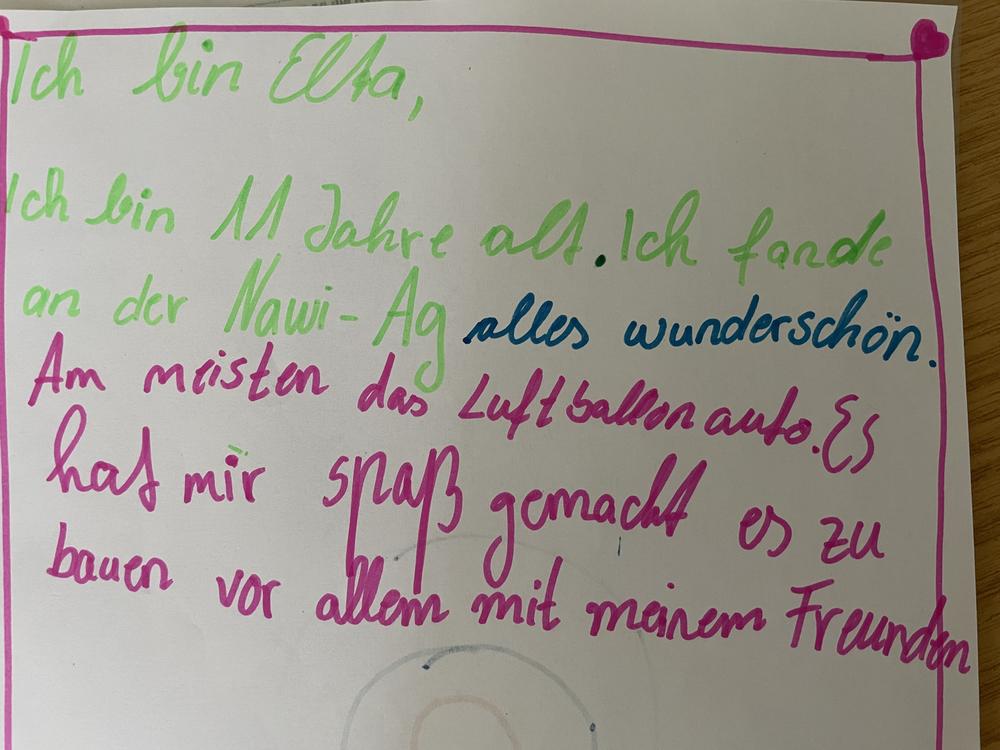 Ich bin Elta,
Ich bin 11 Jahre alt. Ich fande
an der Nawi-Ag alles wunderschön.
Am meisten das Luftballonauto. Es
hat mir spaß gemacht es zu
bauen vor allem mit meinem Freunden